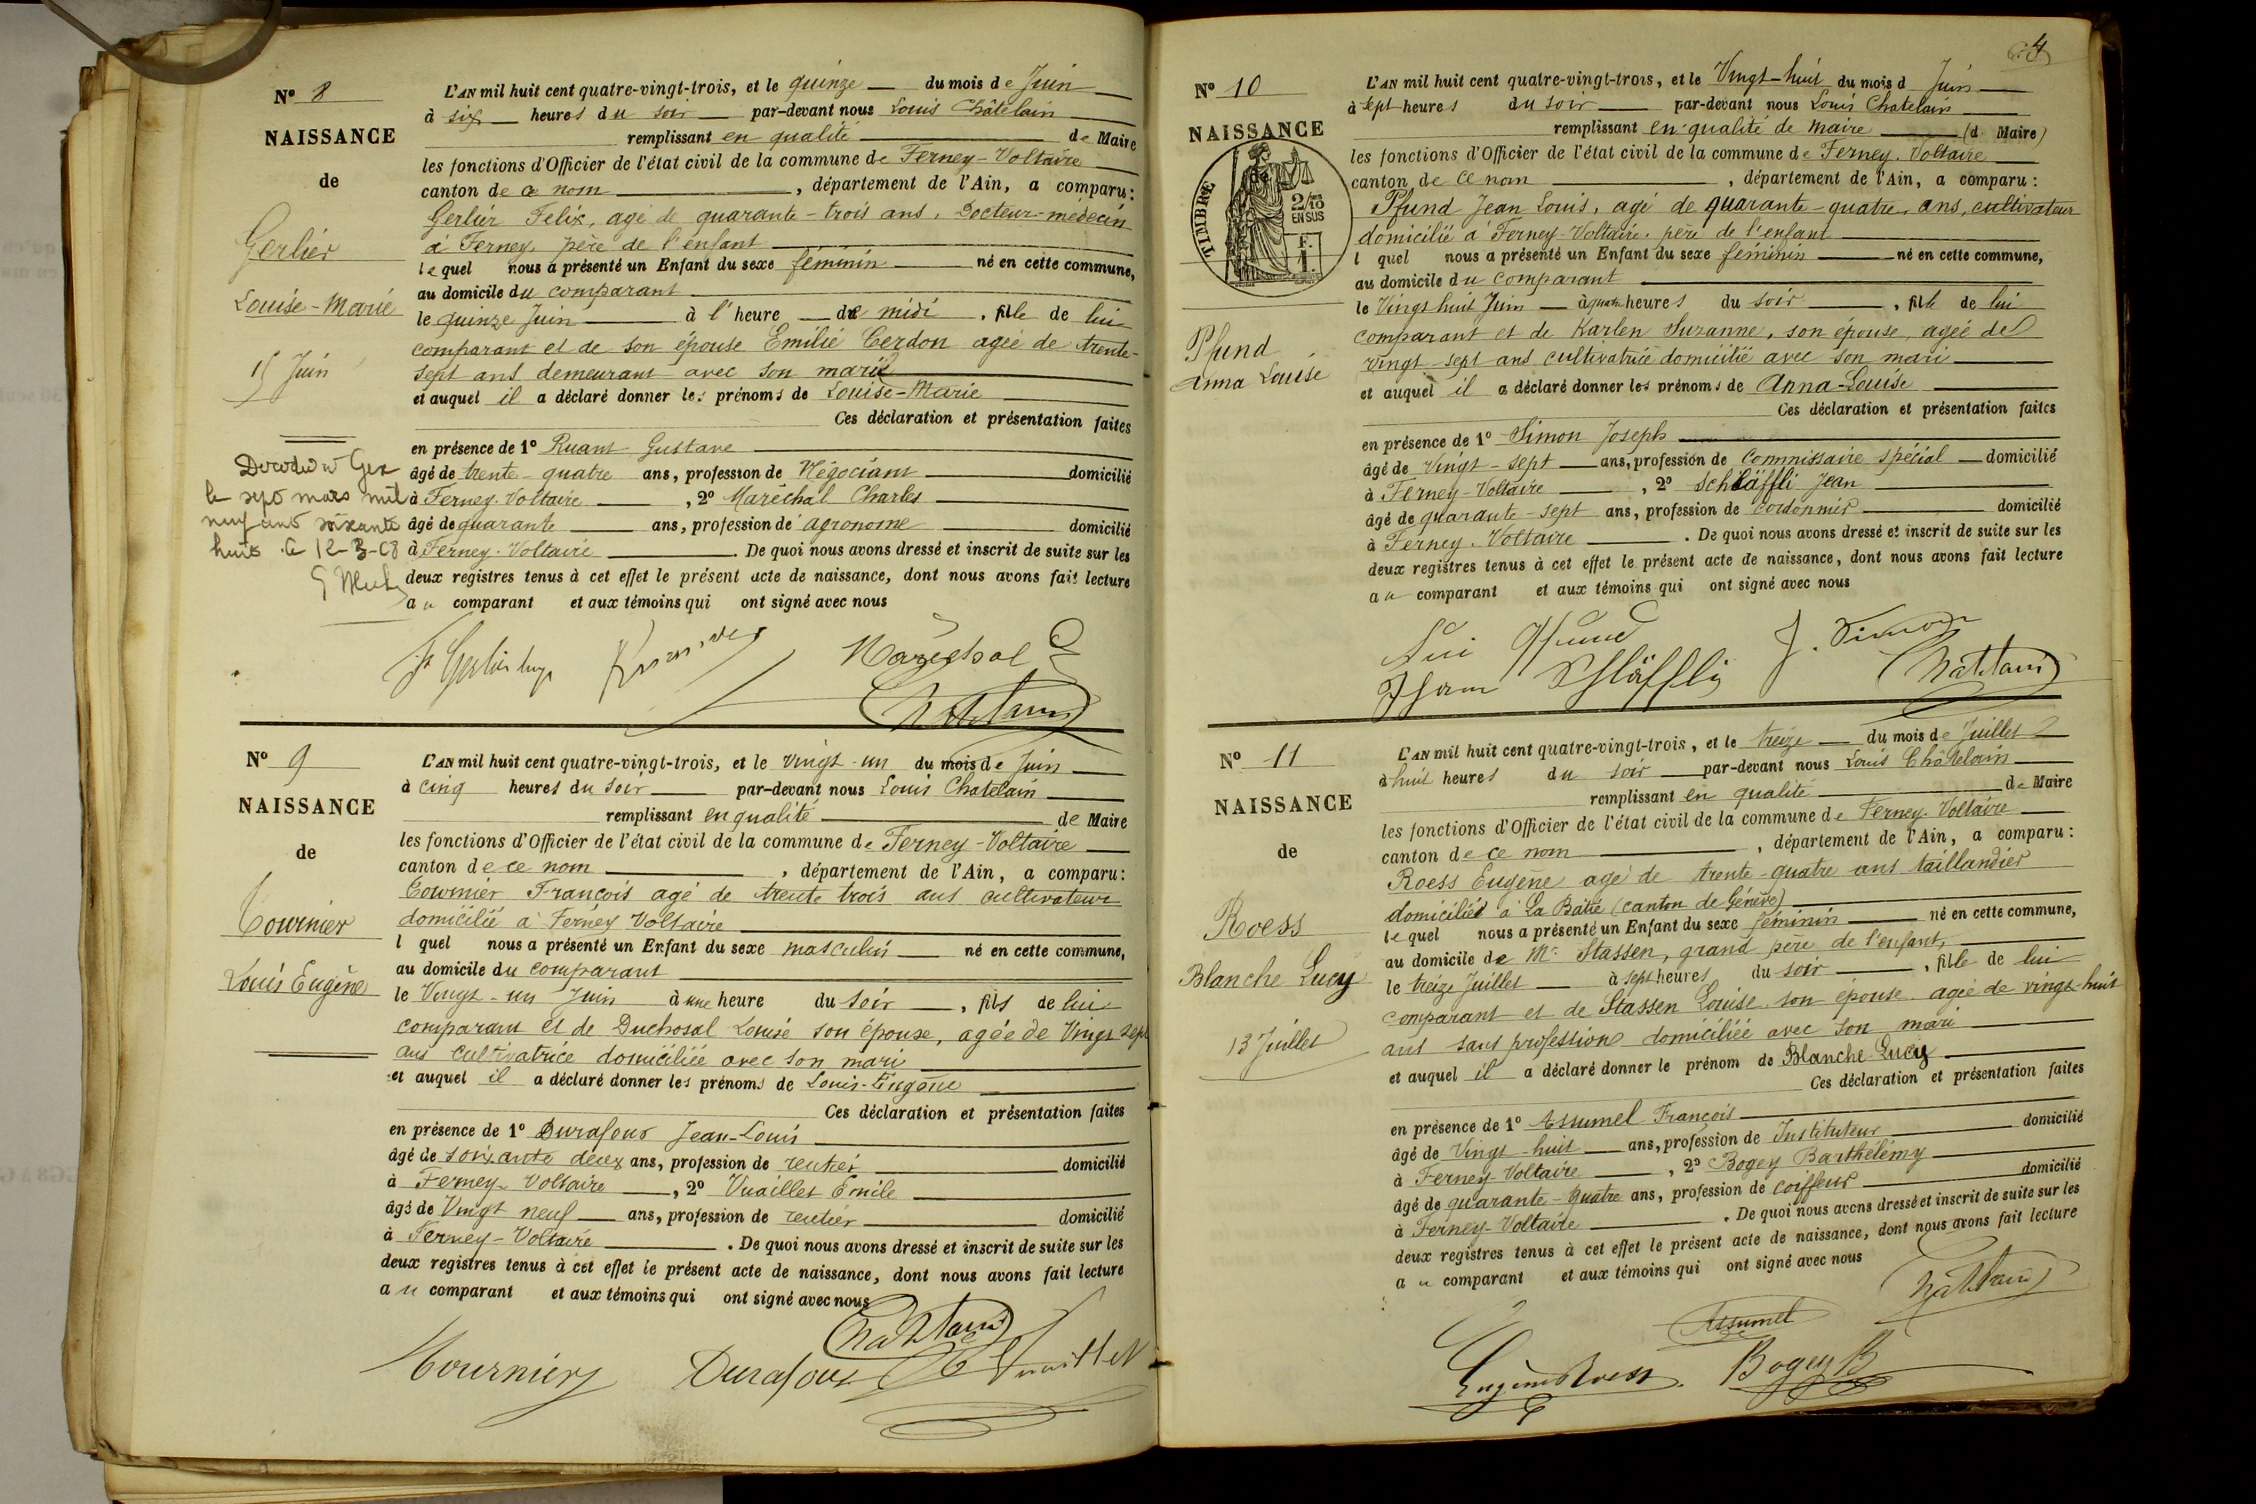 Nº 8
NAISSANCE
de
Gerlier
Louise-Marie
15 Juin
Décédée à Gex
le sept mars mil
neuf cent soixante
huit. Le 12-3-68
L'AN mil huit cent quatre-vingt-trois, et le quinze du mois de Juin
à six heures du soir par-devant nous Louis Châtelain
remplissant en qualité de Maire
les fonctions d'Officier de l'état civil de la commune de Ferney-Voltaire
canton de ce nom, département de l'Ain, a comparu:
Gerlier Felix, agé de quarante-trois ans, Docteur-médecin
à Ferney, père de l'enfant
lequel nous a présenté un Enfant du sexe féminin né en cette commune,
au domicile du comparant
le quinze Juin à l'heure de midi, fille de lui
comparant et de son épouse Emilie Cerdon agée de trente-
sept ans demeurant avec son mari
et auquel il a déclaré donner les prénoms de Louise-Marie
Ces déclaration et présentation faites
en présence de 1º Ruant Gustave
âgé de trente-quatre ans, profession de Négociant domicilié
à Ferney-Voltaire, 2º Maréchal Charles
âgé de quarante ans, profession de agronome domicilié
à Ferney-Voltaire. De quoi nous avons dressé et inscrit de suite sur les
deux registres tenus à cet effet le présent acte de naissance, dont nous avons fait lecture
au comparant et aux témoins qui ont signé avec nous
Maréchal
Nº 9
NAISSANCE
de
Tournier
Louis Eugène
L'AN mil huit cent quatre-vingt-trois, et le vingt-un du mois de Juin
à cinq heures du soir par-devant nous Louis Chatelain
remplissant en qualité de Maire
les fonctions d'Officier de l'état civil de la commune de Ferney-Voltaire
canton de ce nom, département de l'Ain, a comparu:
Tournier François agé de trente trois ans cultivateur
domicilié à Ferney Voltaire
l quel nous a présenté un Enfant du sexe masculin né en cette commune,
au domicile du comparant
le Vingt-un Juin à une heure du soir, fils de lui
comparant et de Duchosal Louise son épouse, agée de Vingt sept
ans cultivatrice domiciliée avec son mari
et auquel il a déclaré donner les prénoms de Louis-Eugène
Ces déclaration et présentation faites
en présence de 1º Durafour Jean-Louis
âgé de soixante deux ans, profession de rentier domicilié
à Ferney-Voltaire, 2º Vuaillet Emile
âgé de Vingt neuf ans, profession de rentier domicilié
à Ferney-Voltaire. De quoi nous avons dressé et inscrit de suite sur les
deux registres tenus à cet effet le présent acte de naissance, dont nous avons fait lecture
au comparant et aux témoins qui ont signé avec nous
Chatelain
Tournier Durafour Vuaillet
4
Nº 10
NAISSANCE
de
TIMBRE
2/10 EN SUS
F. 1.
Pfund
Anna Louise
L'AN mil huit cent quatre-vingt-trois, et le Vingt-huit du mois d Juin
à sept heures du soir par-devant nous Louis Chatelain
remplissant en qualité de maire (d Maire)
les fonctions d'Officier de l'état civil de la commune de Ferney-Voltaire
canton de ce nom, département de l'Ain, a comparu:
Pfund Jean Louis, agé de quarante-quatre ans, cultivateur
domicilié à Ferney-Voltaire, père de l'enfant
l quel nous a présenté un Enfant du sexe féminin né en cette commune,
au domicile du comparant
le Vingt huit Juin à quatre heures du soir, fille de lui
comparant et de Karlen Suzanne, son épouse, agée de
vingt-sept ans cultivatrice domicilié avec son mari
et auquel il a déclaré donner les prénoms de Anna-Louise
Ces déclaration et présentation faites
en présence de 1º Simon Joseph
âgé de Vingt-sept ans, profession de Commissaire spécial domicilié
à Ferney-Voltaire, 2º Schläffli Jean
âgé de quarante-sept ans, profession de cordonnier domicilié
à Ferney-Voltaire. De quoi nous avons dressé et inscrit de suite sur les
deux registres tenus à cet effet le présent acte de naissance, dont nous avons fait lecture
au comparant et aux témoins qui ont signé avec nous
Pfund J. Simon
Schläffli Chatelain
Nº 11
NAISSANCE
de
Roess
Blanche Lucy
13 Juillet
L'AN mil huit cent quatre-vingt-trois, et le treize du mois de Juillet
à huit heures du soir par-devant nous Louis Châtelain
remplissant en qualité de Maire
les fonctions d'Officier de l'état civil de la commune de Ferney-Voltaire
canton de ce nom, département de l'Ain, a comparu:
Roess Eugène agé de trente-quatre ans taillandier
domicilié à La Bâtie (canton de Génève)
lequel nous a présenté un Enfant du sexe féminin né en cette commune,
au domicile de Mr Stassen, grand père de l'enfant,
le treize Juillet à sept heures du soir, fille de lui
comparant et de Stassen Louise son épouse agée de vingt-huit
ans sans profession domiciliée avec son mari
et auquel il a déclaré donner le prénom de Blanche Lucy
Ces déclaration et présentation faites
en présence de 1º Assumel François
âgé de Vingt-huit ans, profession de Instituteur domicilié
à Ferney Voltaire, 2º Bogey Barthélémy
âgé de quarante-quatre ans, profession de coiffeur domicilié
à Ferney-Voltaire. De quoi nous avons dressé et inscrit de suite sur les
deux registres tenus à cet effet le présent acte de naissance, dont nous avons fait lecture
au comparant et aux témoins qui ont signé avec nous
Chatelain
Assumel
Eugène Roess Bogey B